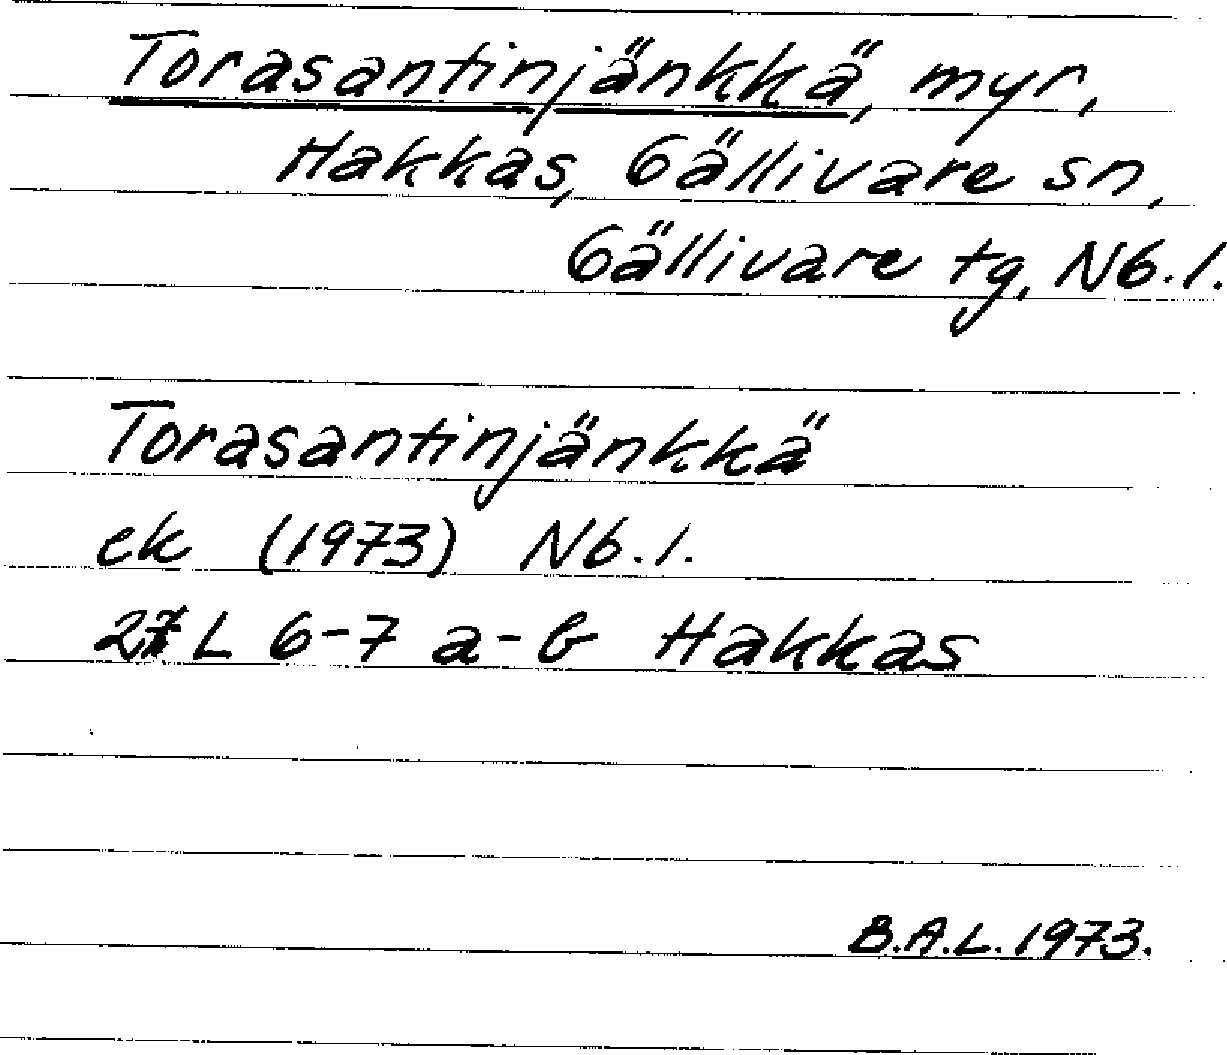 Torasantinjänkkä, myr,
Hakkas, Gällivare sn,
Gällivare tg, Nb.l.
Torasantinjänkkä
ek (1973) Nb.l.
27 L 6-7 a-b Hakkas
B.A.L. 1973.